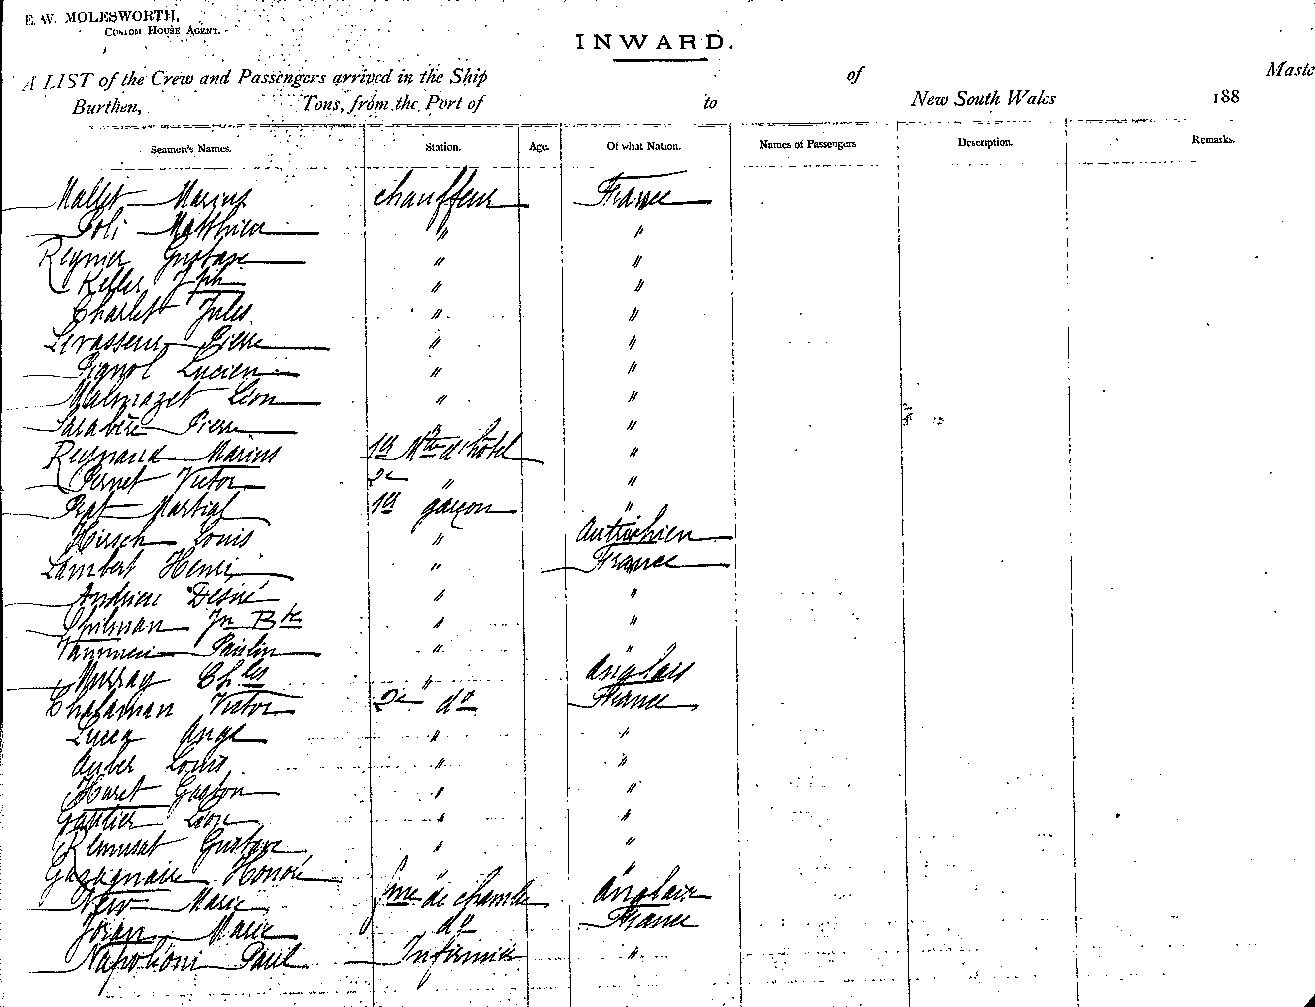 E. W. MOLESWORTH,
CUSTOM HOUSE AGENT.
INWARD.
A LIST of the Crew and Passengers arrived in the Ship of Maste
Burthen, Tons, from the Port of to New South Wales 188
Seamen's Names. Station. Age. Of what Nation. Names of Passengers Description. Remarks.
Mallet Marius chauffeur France
Poli Matthieu " "
Reynier Gustave " "
Keller Jph " "
Charlet Jules " "
Levasseur Pierre " "
Pignol Lucien " "
Malmazet Léon " "
Sarabère Pierre " "
Reynaud Marius 1er Mtre d'hôtel "
Pernet Victor 2e " "
Prat Martial 1er garçon "
Hirsch Louis " Autrichien
Lambert Henri " France
Andrieu Désiré " "
Jn Bte " "
Paulin " "
Murray Chles " Anglais
Victor 2e do France
Lucca Ange " "
Auber Louis " "
Huret Gaston " "
Gautier Léon " "
Remusat Gustave " "
Gazagnaire Honoré " "
Marie fme de chambre Anglaise
Marie do France
Napoléoni Paul Infirmier "